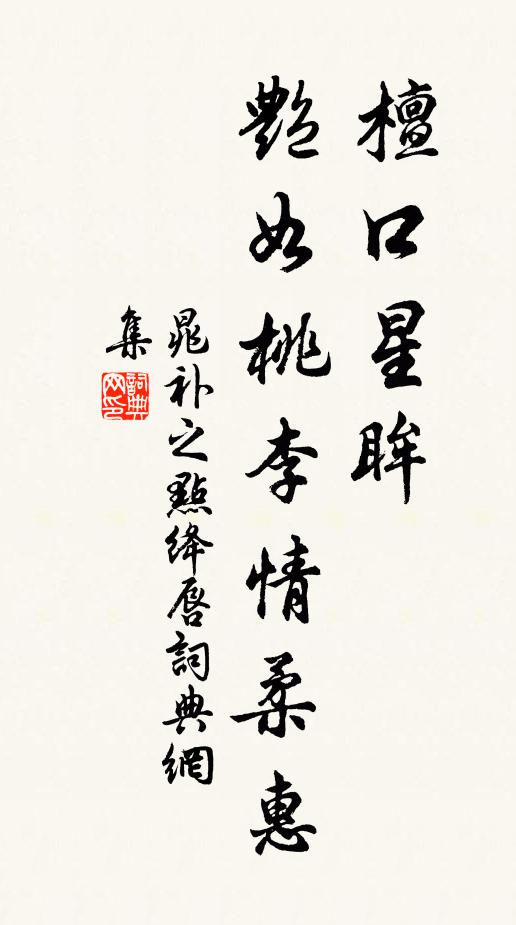 檀口星眸
艷如桃李情柔惠
晁补之點绛唇詞典網
集
詞典网印